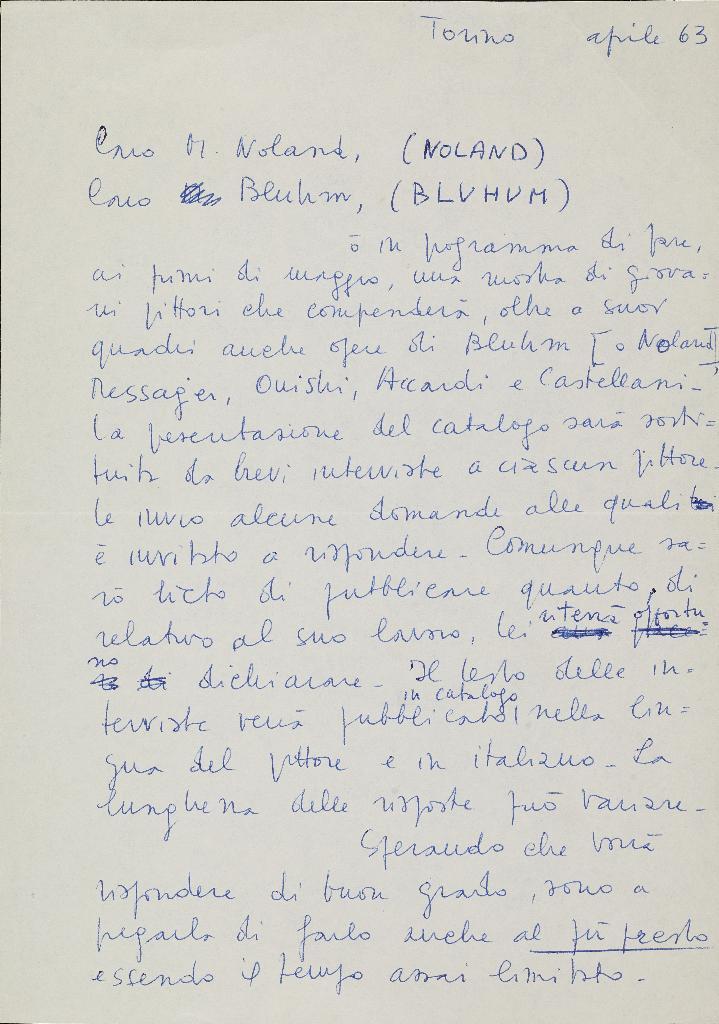 Torino aprile 63
Caro M. Noland, (NOLAND)
Caro Bluhm, (BLUHUM)
ò in programma di fare,
ai primi di maggio, una mostra di giova=
ni pittori che comprenderà, oltre a suoi
quadri anche opere di Bluhm [o Noland],
Messager, Onishi, Accardi e Castellani-
la presentazione del catalogo sarà sosti=
tuita da brevi interviste a ciascun pittore.
le invio alcune domande alle quali
è invitato a rispondere - Comunque sa=
rò lieto di pubblicare quanto, di
relativo al suo lavoro, lei riterrà opportu=
no dichiarare - Il testo delle in=
terviste verrà pubblicato in catalogo nella lin=
gua del pittore e in italiano - La
lunghezza delle risposte può variare -
Sperando che vorrà
rispondere di buon grado, sono a
pregarla di farlo anche al più presto
essendo il tempo assai limitato -